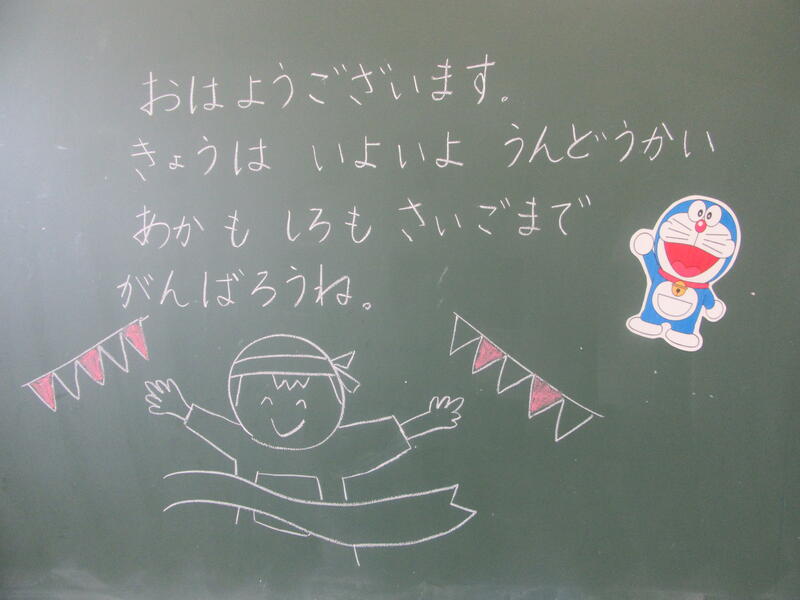 おはようございます。
きょうは いよいよ うんどうかい
あかも しろも さいごまで
がんばろうね。